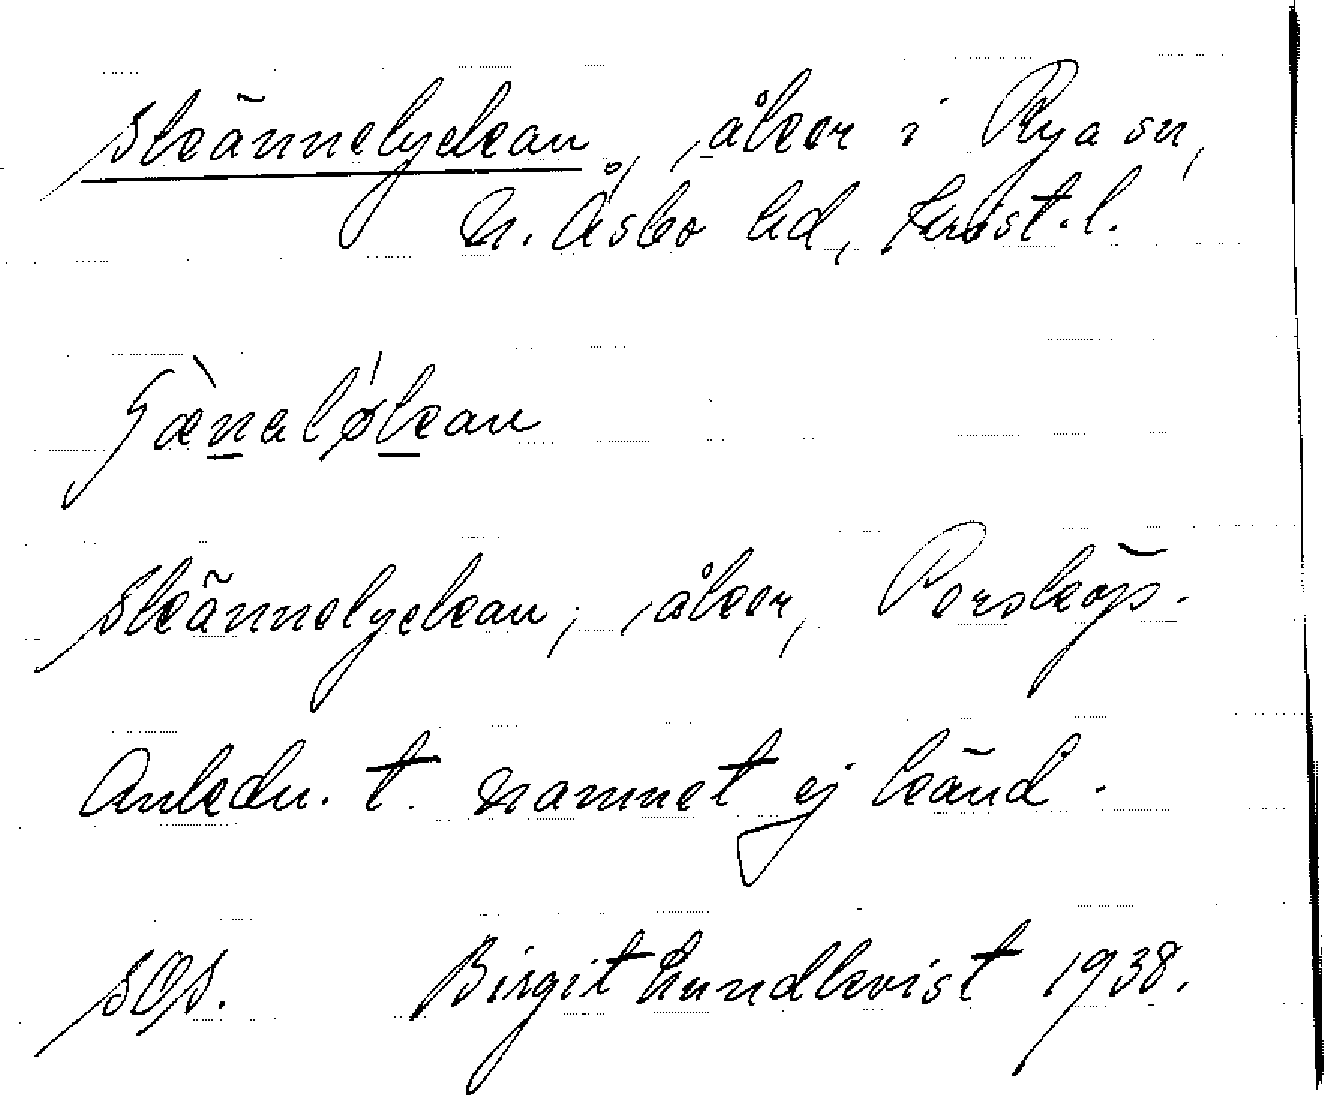 Skännelyckan, åker i Rya sn,
N. Åsbo hd, Krist. l.
Skännelyckan, åker, Persköp.
Anledn. t. namnet ej känd.
SOS. Birgit Lundkvist 1938.